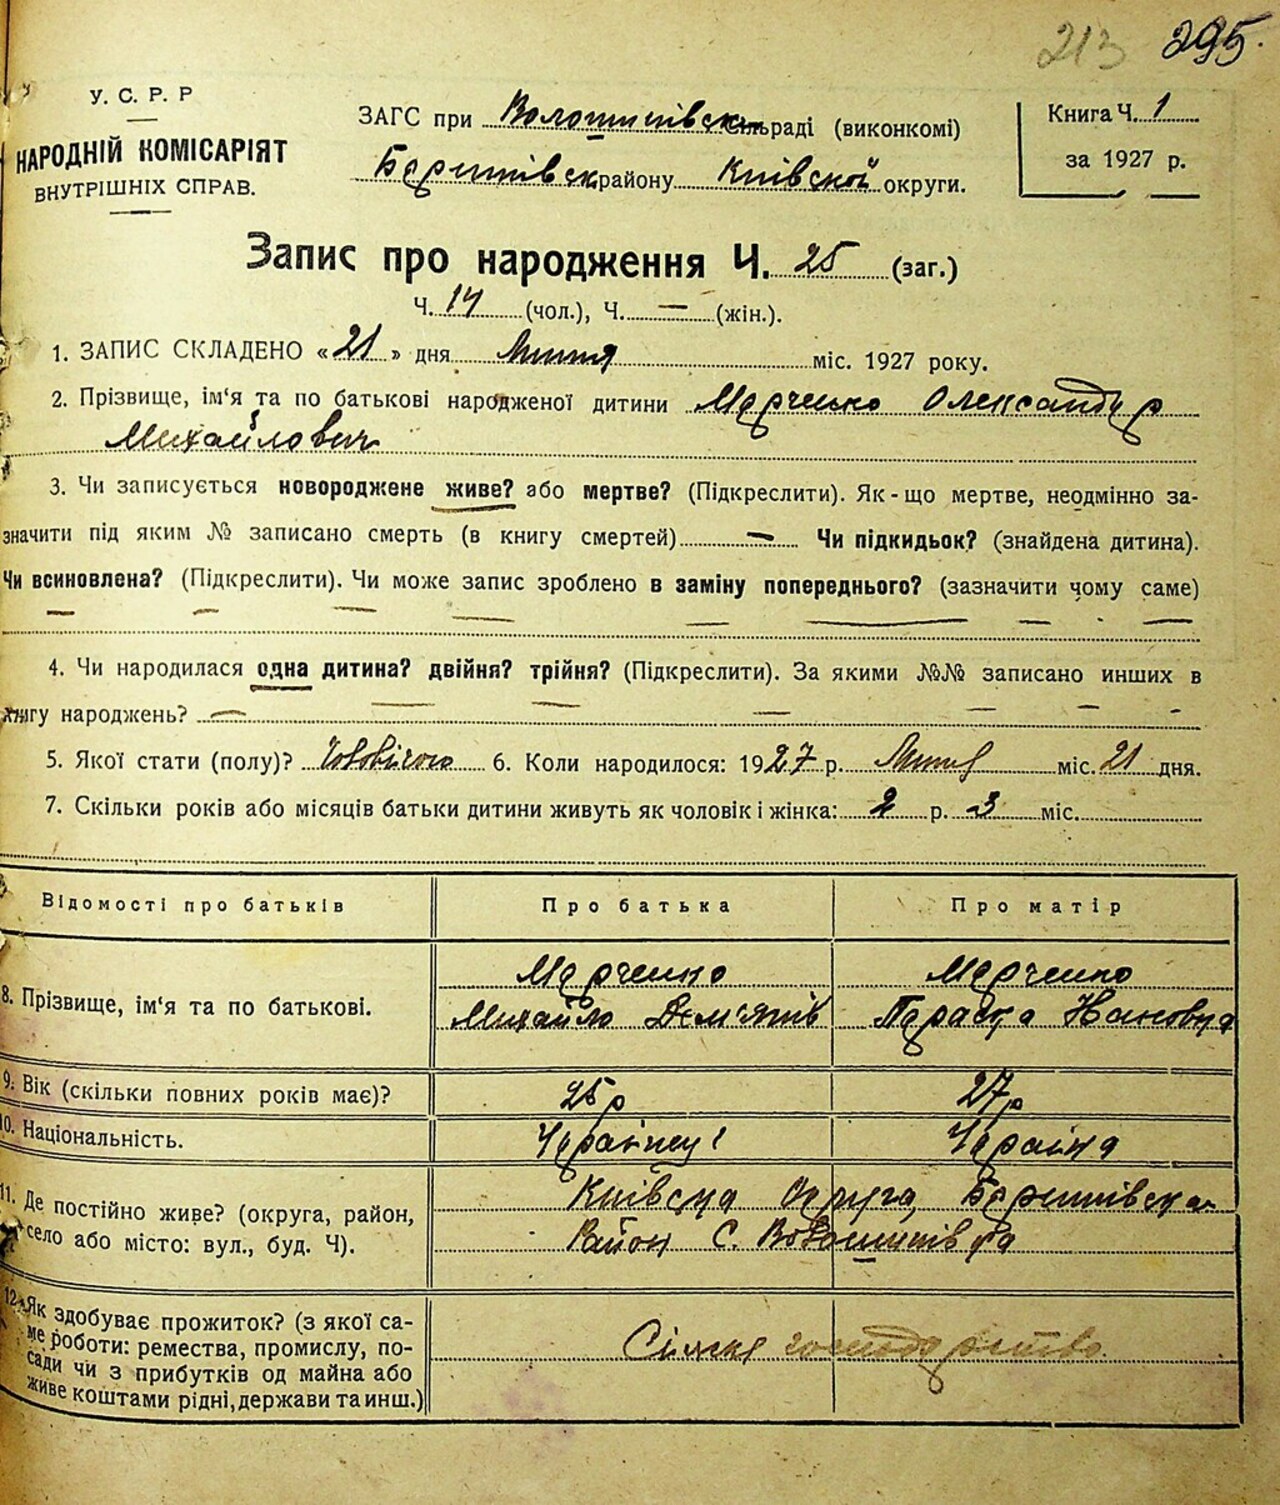 213 295.
У. С. Р. Р
НАРОДНІЙ КОМІСАРІЯТ
ВНУТРІШНІХ СПРАВ.
ЗАГС при Волошинівськ сільраді (виконкомі)
Баришівськ району Київської округи.
Книга Ч. 1
за 1927 р.
Запис про народження Ч. 25 (заг.)
Ч. 14 (чол.), Ч. — (жін.).
1. ЗАПИС СКЛАДЕНО «21» дня Липня міс. 1927 року.
2. Прізвище, ім‘я та по батькові народженої дитини Марченко Олександар
Михайлович
3. Чи записується новороджене живе? або мертве? (Підкреслити). Як-що мертве, неодмінно за-
значити під яким № записано смерть (в книгу смертей) — Чи підкидьок? (знайдена дитина).
Чи всиновлена? (Підкреслити). Чи може запис зроблено в заміну попереднього? (зазначити чому саме)
4. Чи народилася одна дитина? двійня? трійня? (Підкреслити). За якими №№ записано инших в
книгу народжень? —
5. Якої стати (полу)? 6. Коли народилося: 1927 р. Липня міс. 21 дня.
7. Скільки років або місяців батьки дитини живуть як чоловік і жінка: 2 р. 3 міс.
Відомості про батьків
Про батька
Про матір
8. Прізвище, ім‘я та по батькові.
Марченко
Михайло Дем'янів
Марченко
Параска Івановна
9. Вік (скільки повних років має)?
25 р
27 р
10. Національність.
Українець
Україна
11. Де постійно живе? (округа, район,
село або місто: вул., буд. Ч).
Київська Округа, Баришівська
Район С. Волошинівка
12. Як здобуває прожиток? (з якої са-
ме роботи: ремества, промислу, по-
сади чи з прибутків од майна або
живе коштами рідні, держави та инш.)
Сільске господарство.